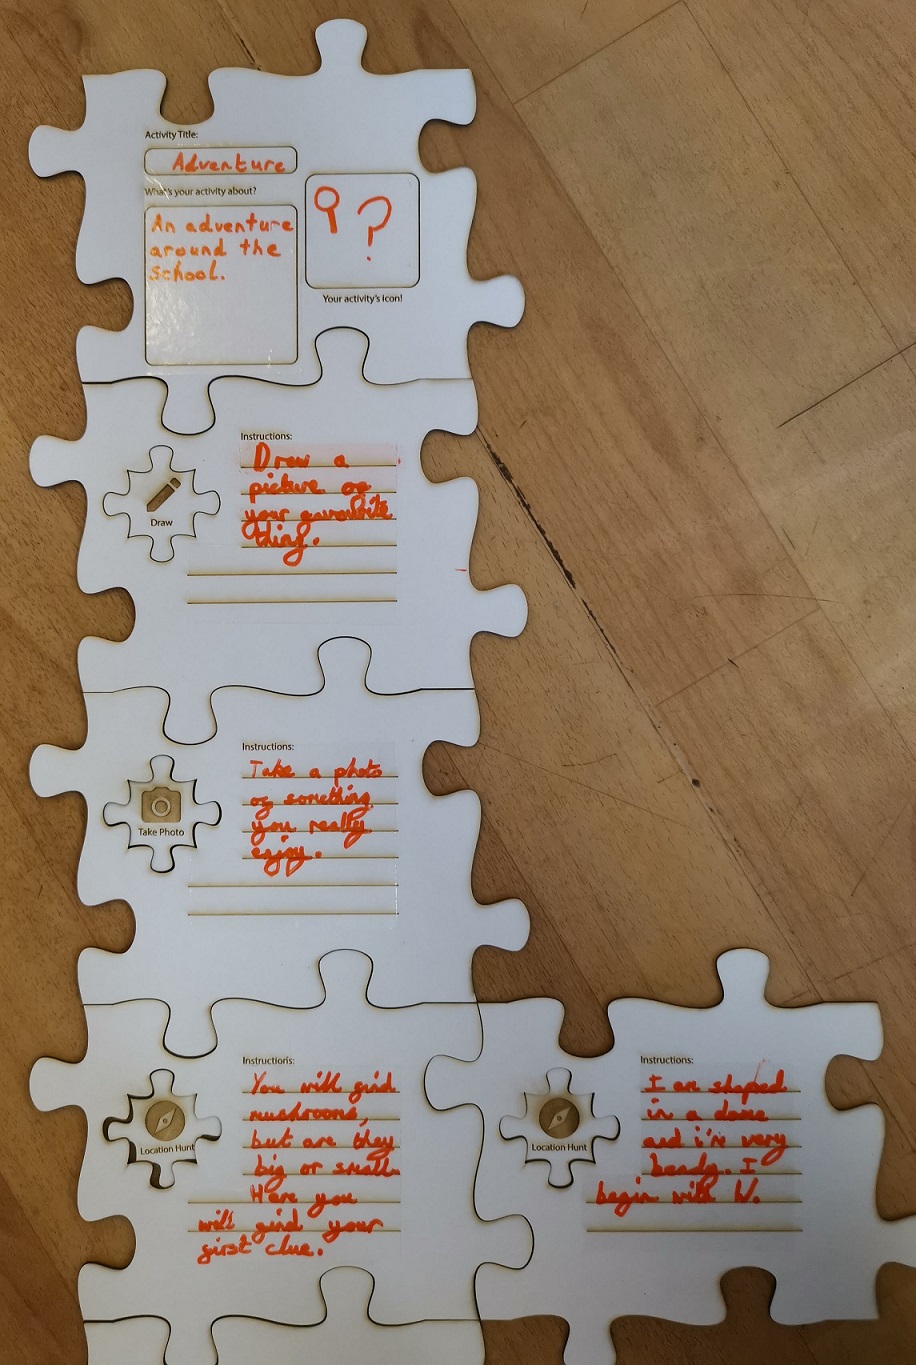 Activity Title:
Adventure
What's your activity about?
An adventure
around the
school.
?
Your activity's icon!
Instructions:
Draw a
picture of
your favourite
thing.
Draw
Instructions:
Take a photo
of something
you really
enjoy.
Take Photo
Instructions:
You will find
mushrooms,
but are they
big or small.
Here you
will find your
first clue.
Location Hunt
Instructions:
I am shaped
in a dome
and i'm very
bendy. I
begin with W.
Location Hunt